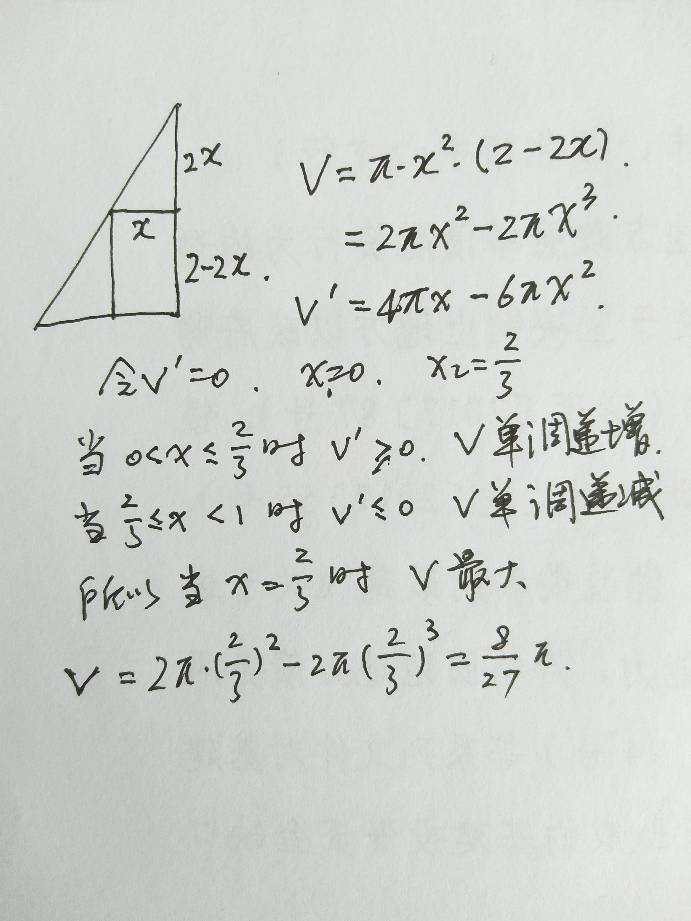 2x
x
2-2x.
V = π·x²·(2-2x).
= 2πx²-2πx³.
V' = 4πx - 6πx².
令V'=0. x₁=0. x₂=2/3
当 0<x≤2/3 时 V'≥0. V单调递增.
当 2/3≤x<1 时 V'≤0 V单调递减
所以当 x=2/3 时 V最大
V = 2π·(2/3)²-2π(2/3)³ = 8/27 π.